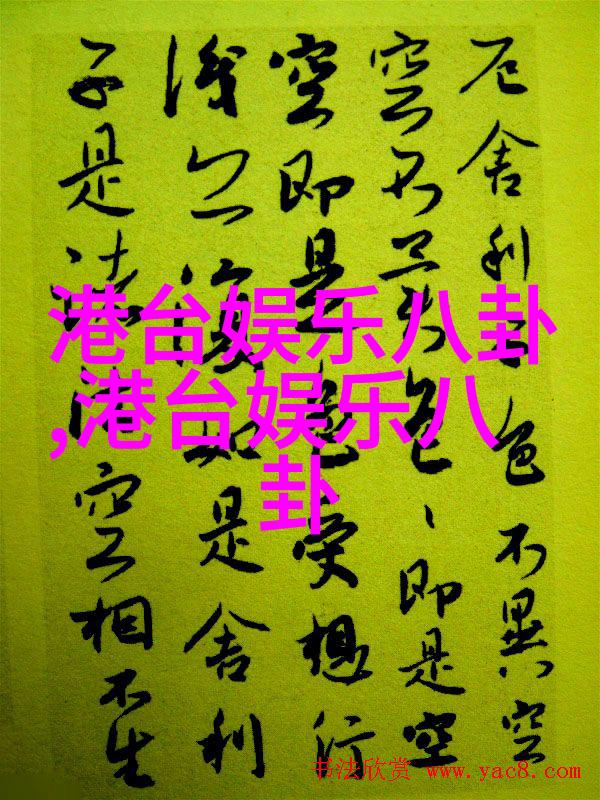 厄舍利子色不異空
空不異色、即是空
空即是色受想行
識亦復如是舍利
子是諸法空相不生
港台娱乐八卦
,港台娱乐八
卦
书法欣赏 www.yac8.com